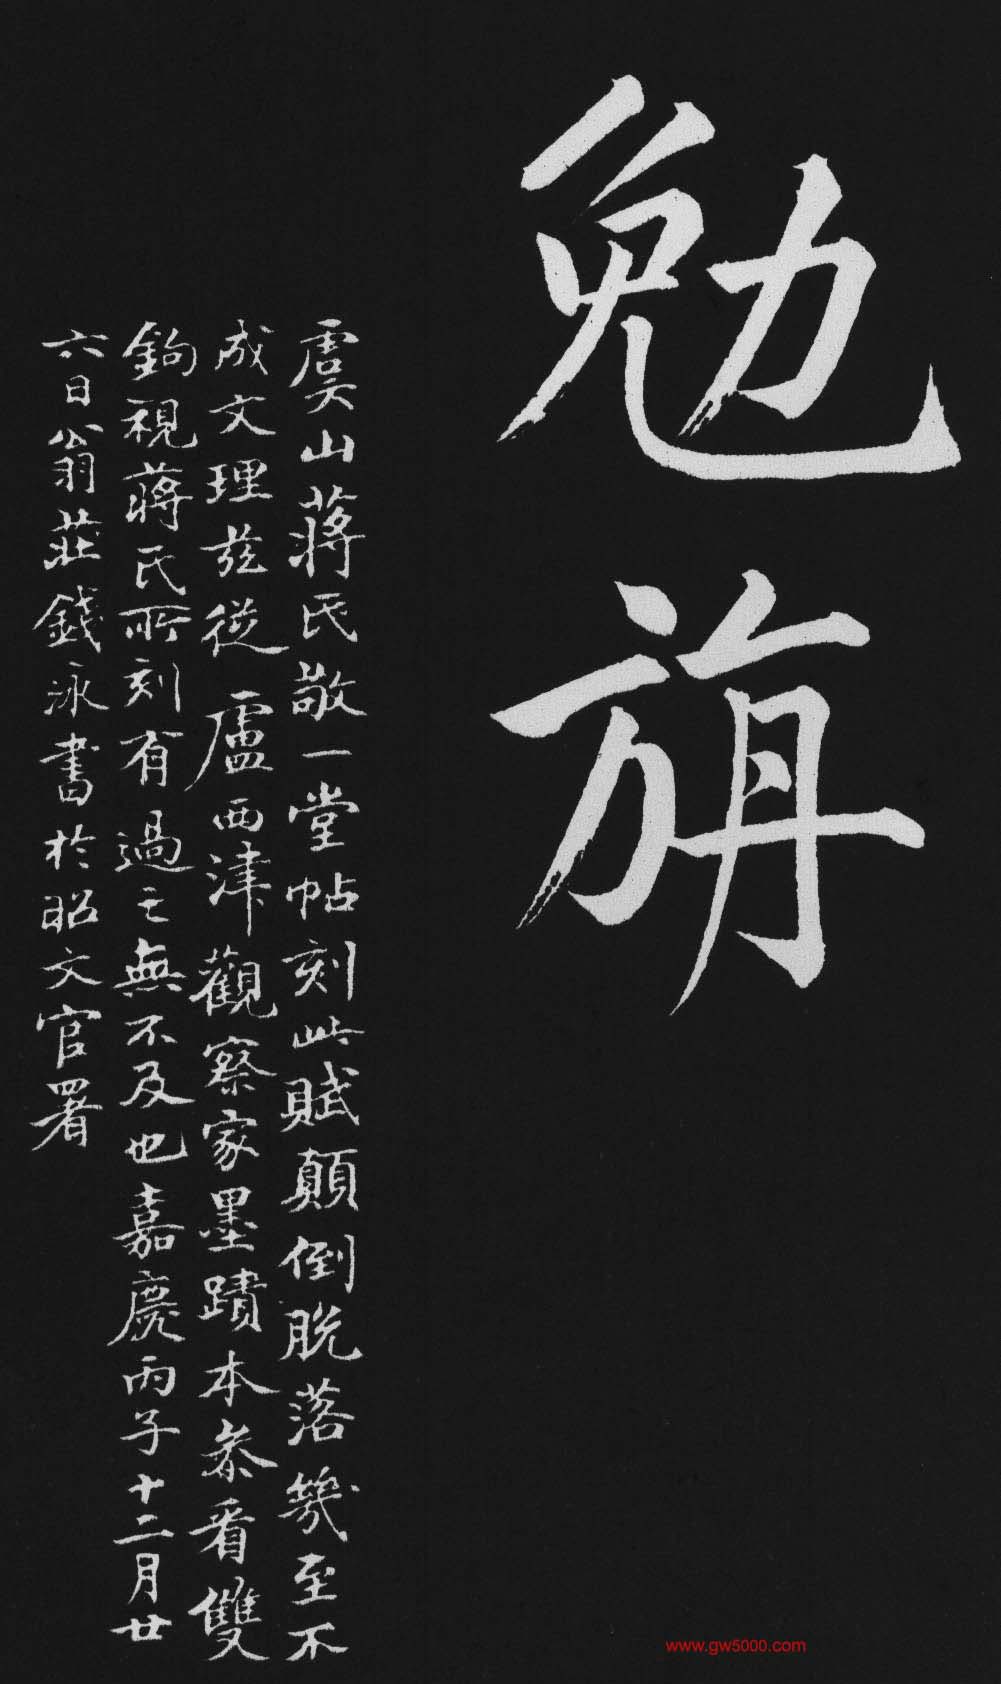 勉旃
虞山蔣氏敬一堂帖刻此賦顛倒脱落幾至不
成文理茲從盧西津觀察家墨蹟本叅看雙
鉤視蔣氏所刻有過之無不及也嘉慶丙子十二月廿
六日翁莊錢泳書於昭文官署
www.gw5000.com